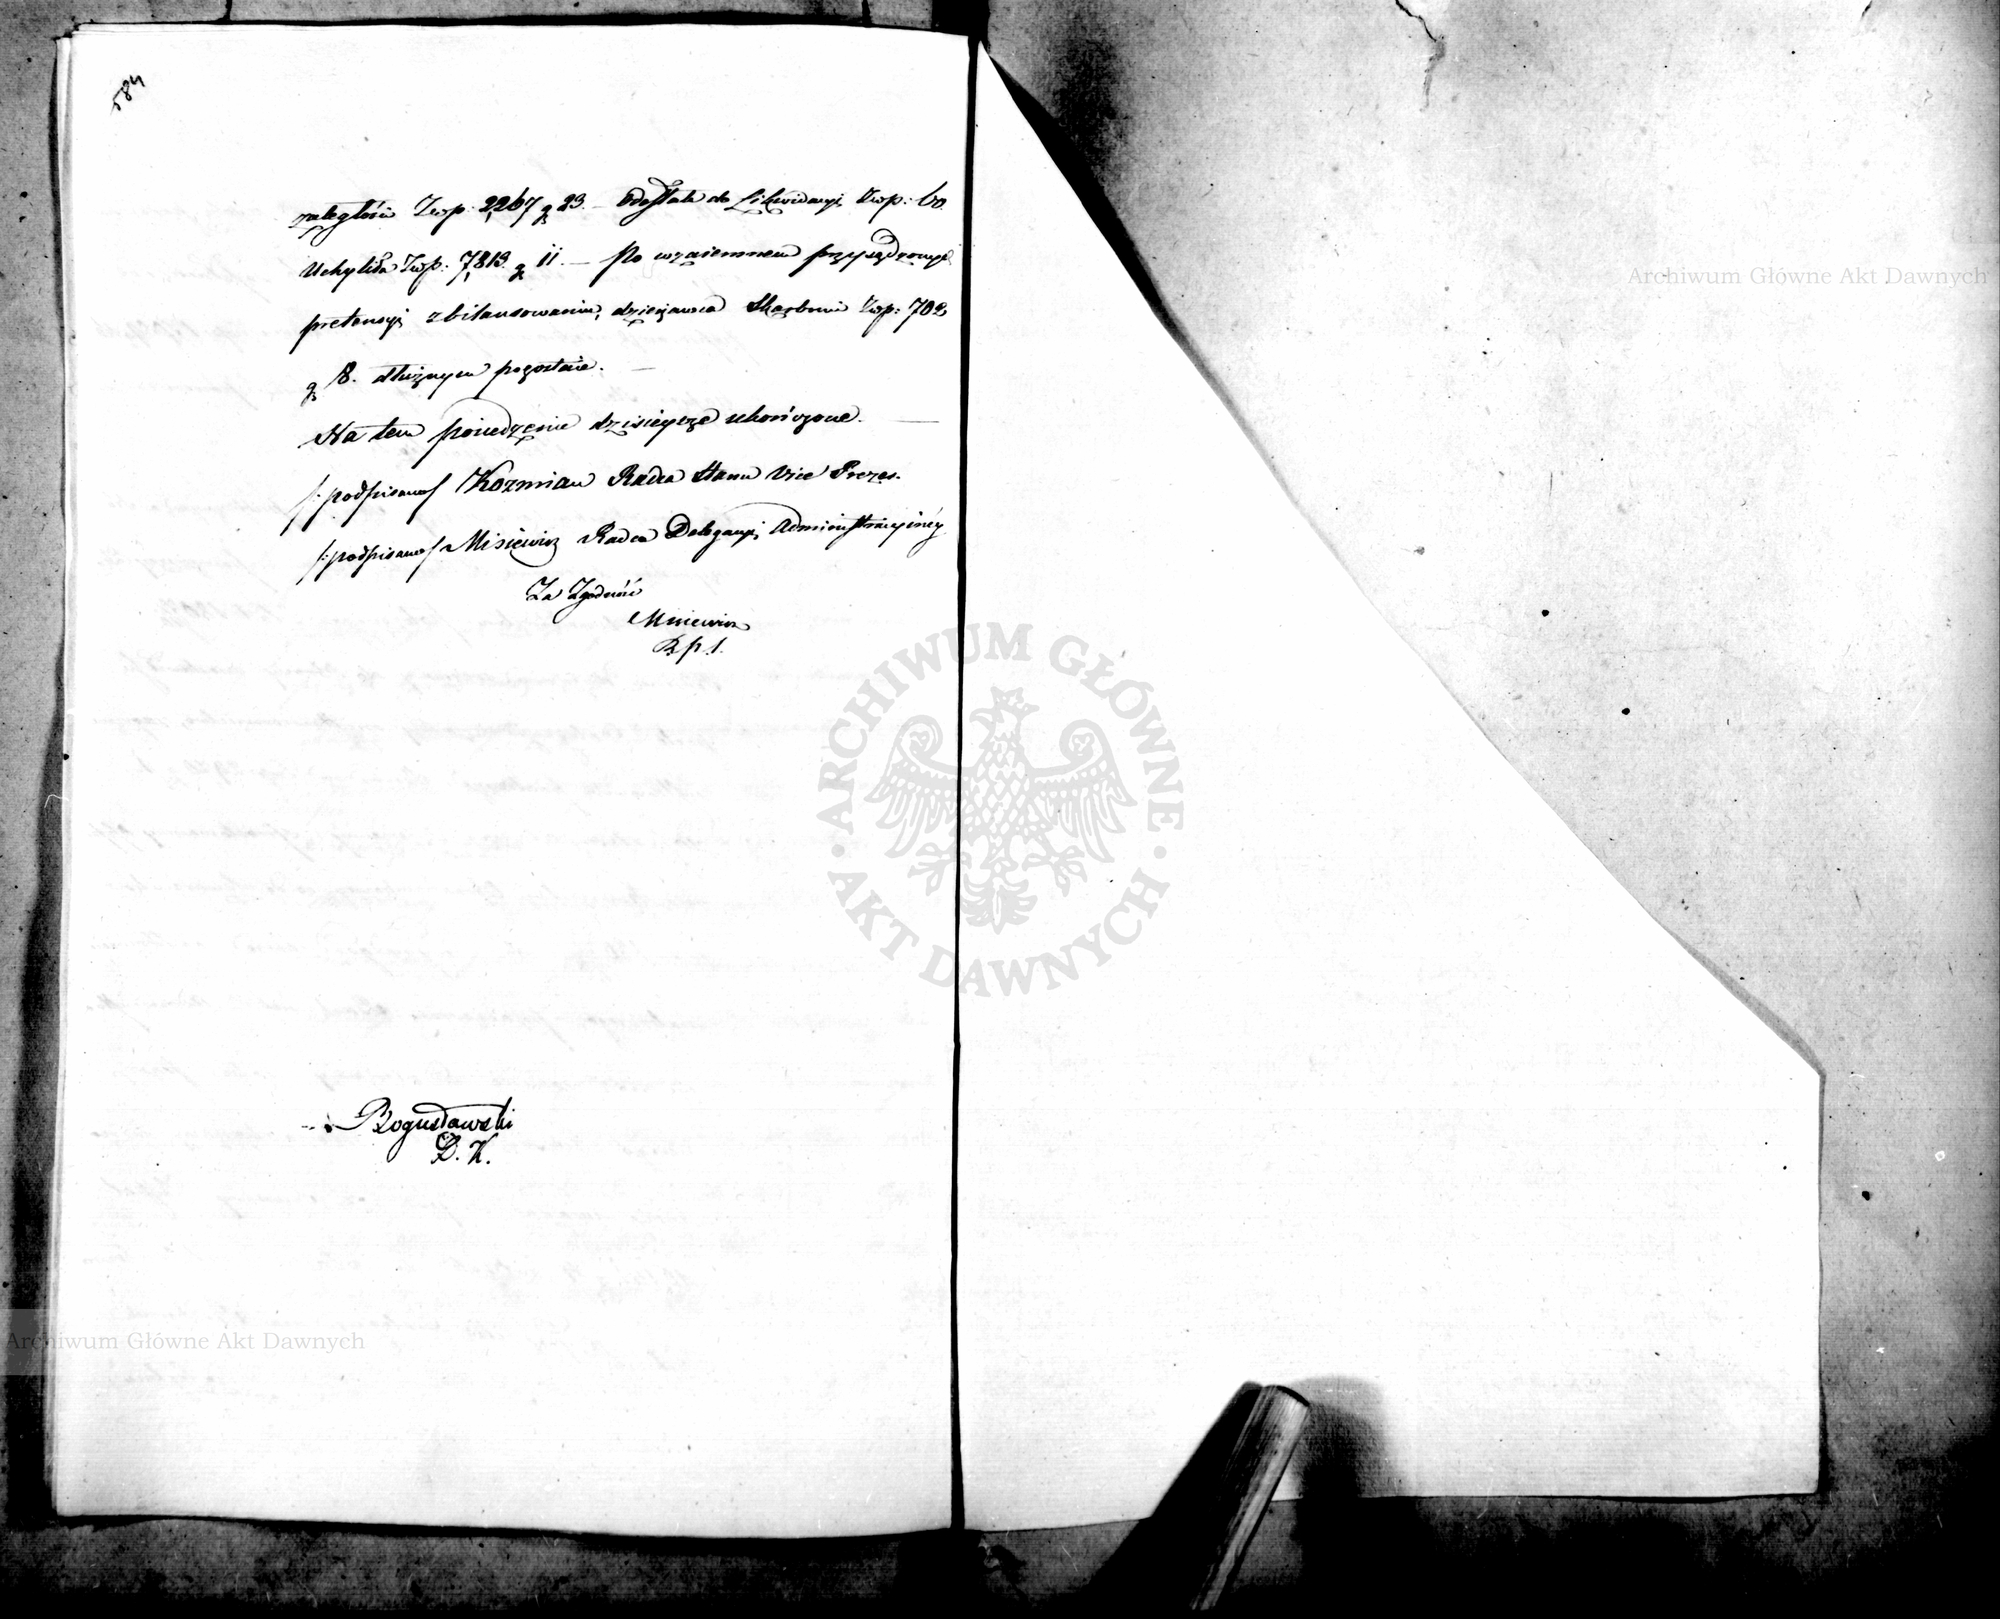 584
zaległości Zwp: 2,267 g 23. — Odesłała do Likwidacyi Zwp: 60.
Uchyliła Zwp: 7,813. g 11. — Po wzaiemnem przysądzonych
pretensyi zbilansowaniu, dzierżawca Skarbowi Zwp: 702
g 8. dłużnym pozostaie. —
Na tem posiedzenie dzisieysze ukończone. —
/:podpisano/ Kozmian Radca Stanu Vice Prezes.
/:podpisano/ Misiewicz Radca Delegacyi Administracyinéy
Za Zgodność
Misiewicz
Bogusławski
D. K.
Archiwum Główne Akt Dawnych
ARCHIWUM GŁÓWNE AKT DAWNYCH
Archiwum Główne Akt Dawnych